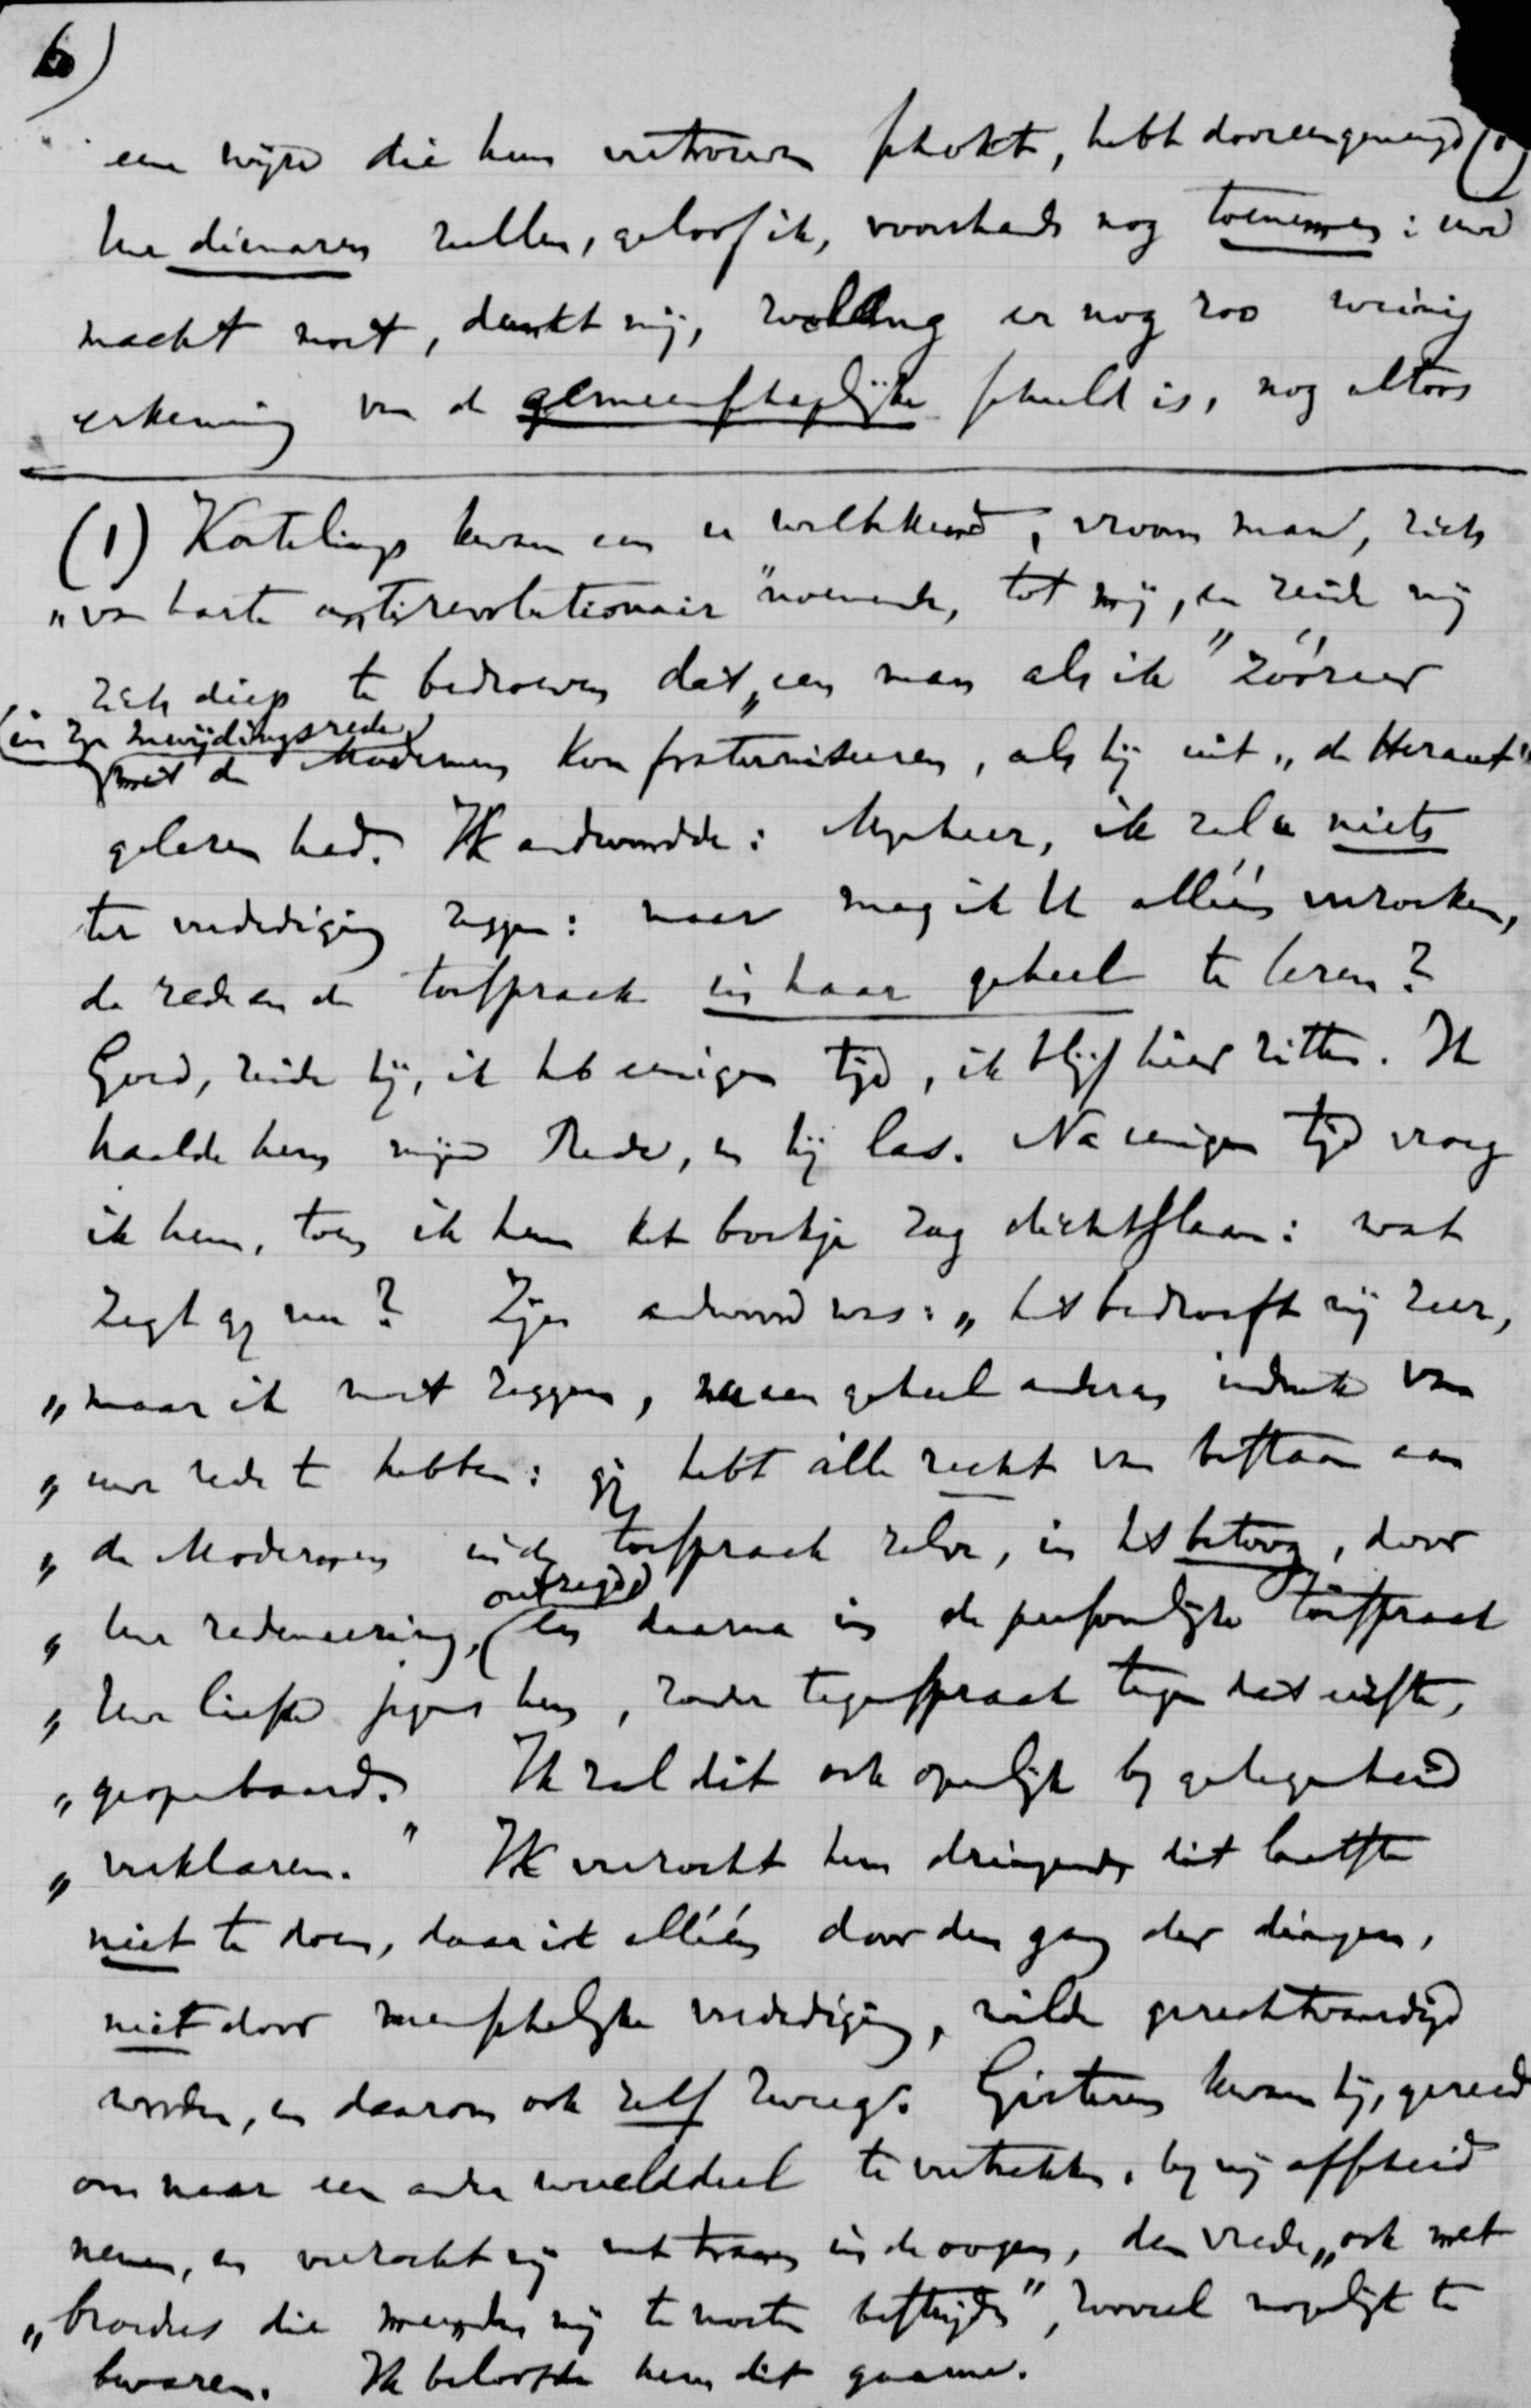 6)
een wijze die hun vertrouwen schokt, hebt dooreengemengd (1)
Uw dienaren zullen, geloof ik, voorshands nog toenemen: uwe
macht moet, dunkt mij, zoolang er nog zoo weinig
erkenning van de gemeenschaplijke schuld is, nog altoos
(1) Kortelings kwam een u welbekend, vroom man, zich
„van harte antirevolutionair" noemende, tot mij, en zeide mij
zich diep te bedroeven dat „een man als ik" zóózeer
(in zyn inwijdingsrede)
met de Modernen kon fraterniseeren, als hij uit „de Heraut"
gelezen had. Ik andwoordde: Mynheer, ik zal u niets
ter verdediging zeggen: maar mag ik U alléén verzoeken,
de rede en de toespraak in haar geheel te lezen?
Goed, zeide hij, ik heb eenigen tijd, ik blijf hier zitten. Ik
haalde hem mijne Rede, en hij las. Na eenigen tijd vroeg
ik hem, toen ik hem het boekje zag dichtslaan: wat
zegt gij nu? Zijn andwoord was: „het bedroeft mij zeer,
„maar ik moet zeggen, een geheel anderen indruk van
„uwe rede te hebben: gij hebt alle recht van bestaan aan
„de Modernen in de toespraak zelve, in het betoog, door
ontzegd)
„uw redeneering, (en daarna in de persoonlijke toespraak
„Uwe liefde jegens hen, zonder tegenspraak tegen dat eerste,
„geopenbaard. Ik zal dit ook openlijk bij gelegenheid
„verklaren." Ik verzocht hem dringend, dit laatste
niet te doen, daar ik alléén door den gang der dingen,
niet door menschelijke verdediging, wilde gerechtvaardigd
worden, en daarom ook zelf zweeg. Gisteren kwam hij, gereed
om naar een ander werelddeel te vertrekken, bij mij afscheid
nemen, en verzocht mij met tranen in de oogen, den vrede „ook met
„broeders die meenden mij te moeten bestrijden", zooveel mogelijk te
bewaren. Ik beloofde hem dit gaarne.